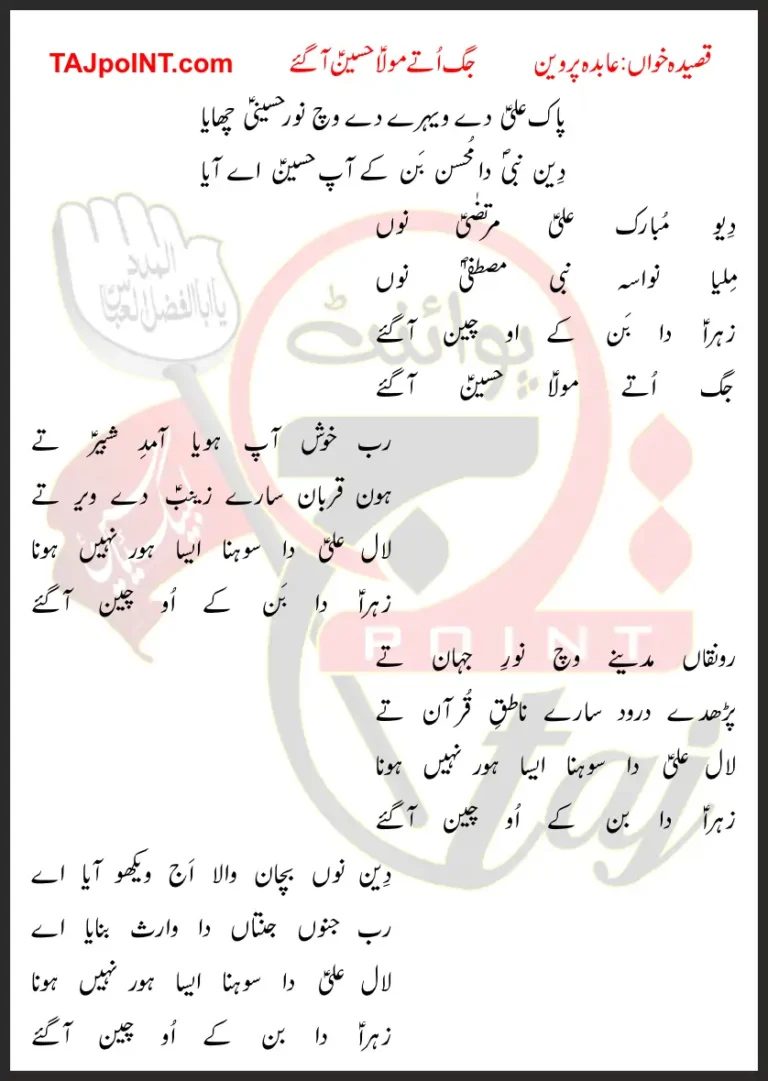 قصیدہ خواں: عابدہ پروین جگ اُتے مولاؑ حسینؑ آ گئے TAJpoINT.com
پاک علیؑ دے ویہرے دے وچ نور حسینیؑ چھایا
دِین نبیؐ دا مُحسن بَن کے آپ حسینؑ اے آیا
دِیو مُبارک علیؑ مرتضٰیؑ نوں
مِلیا نواسہ نبی مصطفیٰؐ نوں
زہراؑ دا بَن کے او چین آ گئے
جگ اُتے مولاؑ حسینؑ آ گئے
رب خوش آپ ہویا آمدِ شبیرؑ تے
ہون قربان سارے زینبؑ دے ویر تے
لال علیؑ دا سوہنا ایسا ہور نہیں ہونا
زہراؑ دا بَن کے اُو چین آ گئے
رونقاں مدینے وچ نورِ جہان تے
پڑھدے درود سارے ناطقِ قُرآن تے
لال علیؑ دا سوہنا ایسا ہور نہیں ہونا
زہراؑ دا بن کے اُو چین آ گئے
دِین نوں بچان والا اَج ویکھو آیا اے
رب جنوں جنتاں دا وارث بنایا اے
لال علیؑ دا سوہنا ایسا ہور نہیں ہونا
زہراؑ دا بن کے اُو چین آ گئے
المدد
یا ابا الفضل العباسؑ
پوائنٹ
POINT
taj